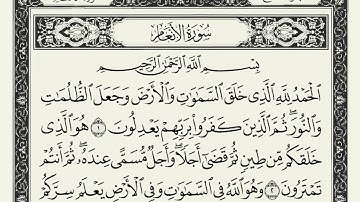 سُورَةُ الأَنعَامِ
بِسْمِ اللَّهِ الرَّحْمَٰنِ الرَّحِيمِ
الْحَمْدُ لِلَّهِ الَّذِي خَلَقَ السَّمَٰوَٰتِ وَالْأَرْضَ وَجَعَلَ الظُّلُمَٰتِ
وَالنُّورَ ۖ ثُمَّ الَّذِينَ كَفَرُوا بِرَبِّهِمْ يَعْدِلُونَ ١ هُوَ الَّذِي
خَلَقَكُم مِّن طِينٍ ثُمَّ قَضَىٰ أَجَلًا ۖ وَأَجَلٌ مُّسَمًّى عِندَهُ ۖ ثُمَّ أَنتُمْ
تَمْتَرُونَ ٢ وَهُوَ اللَّهُ فِي السَّمَٰوَٰتِ وَفِي الْأَرْضِ يَعْلَمُ سِرَّكُمْ